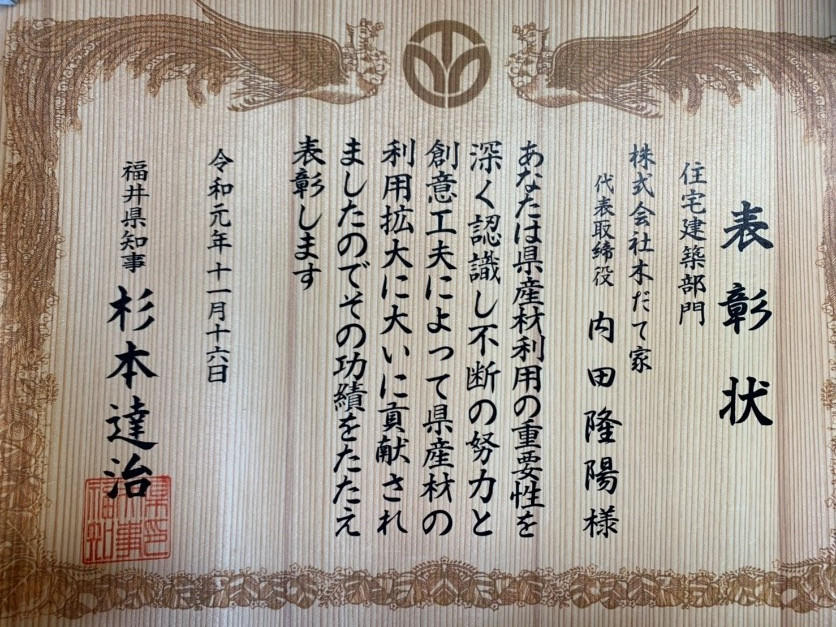 表彰状
住宅建築部門
株式会社木だて家
代表取締役 内田隆陽様
あなたは県産材利用の重要性を
深く認識し不断の努力と
創意工夫によって県産材の
利用拡大に大いに貢献され
ましたのでその功績をたたえ
表彰します
令和元年十一月十六日
福井県知事 杉本達治